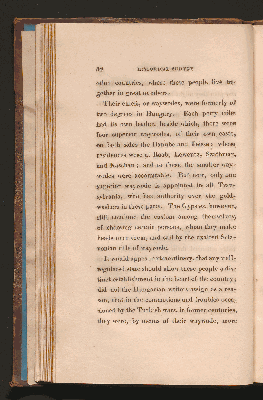 82 HISTORICAL SURVEY
other countries, where these people live to-
gether in great numbers.
Their chiefs, or waywodes, were formerly of
two degrees in Hungary. Each petty tribe
had its own leader, beside which, there were
four superior waywodes, of their own caste,
on both sides the Danube and Teisse; whose
residences were at Raab, Lewentz, Szathmar,
and Kaschau; and to these the smaller way-
wodes were accountable. But now, only one
superior waywode is appointed in all Tran-
sylvania, who has authority over the gold-
washers in those parts. The Gypsies, however,
still continue the custom among themselves,
of choosing certain persons, whom they make
heads over them, and call by the exalted Scla-
vonian title of waywode.
It would appear extraordinary, that any well-
regulated state should allow these people a dis-
tinct establishment in the heart of the country;
did not the Hungarian writers assign as a rea-
son, that in the commotions and troubles occa-
sioned by the Turkish wars, in former centuries,
they were, by means of their waywode, more